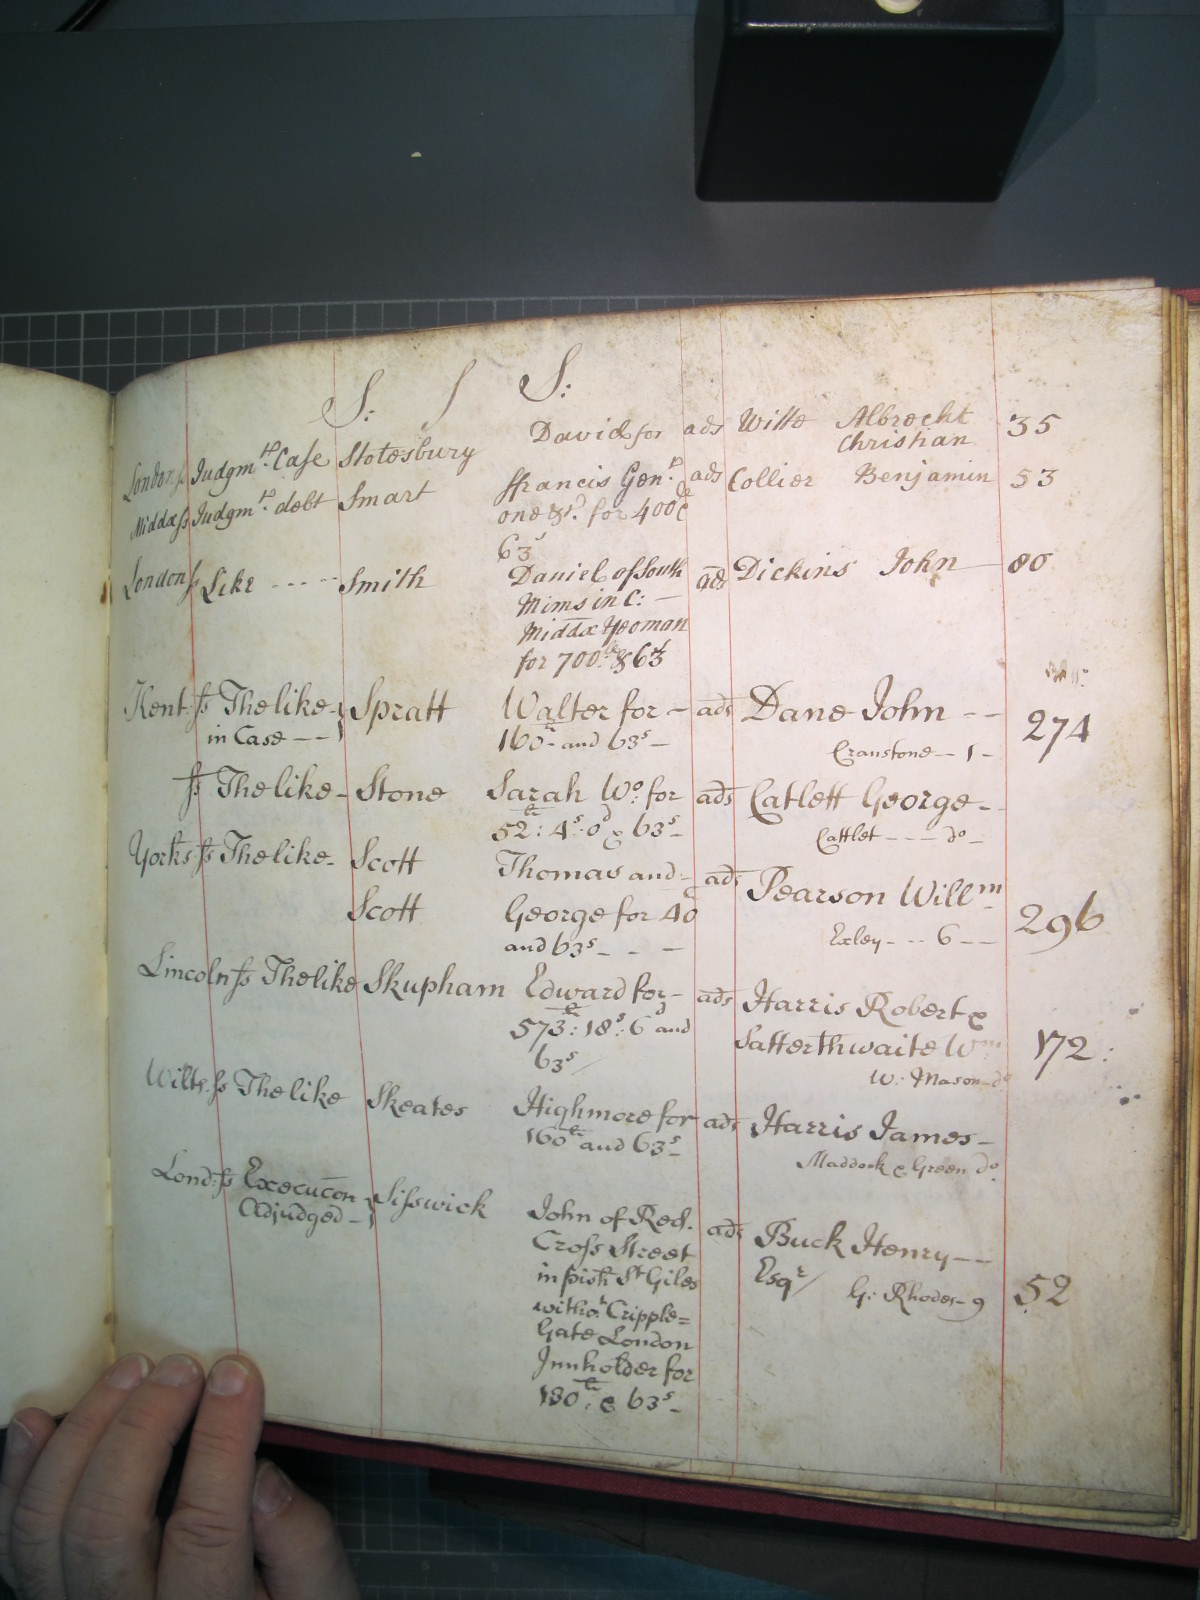 S: S S:
London ss Judgm.t Case Stotesbury David for ads Witte Albrecht 35
Christian
Middx ss Judgm.t debt Smart ffrancis Gen.t ads Collier Benjamin 53
one &c. for 400£
63s
London ss Like - - - - - Smith Daniel of South ads Dickins John 80
Mims in C: —
Middx Yeoman
for 700li & 63s
Kent ss The like - } Spratt Walter for - ads Dane John - - 274
in Case - - - 160li and 63s - Cranstone - 1 -
ss The like - Stone Sarah Wo: for ads Catlett George -
52li: 4s: 0d & 63s - Cattlet - - - do -
Yorks ss The like - Scott Thomas and - ads Pearson Willm
Scott George for 40 296
and 63s - - - Exley - - - 6 - -
Lincoln ss The like Skupham Edward for - ads Harris Robert &
573li: 18s: 6d and Satterthwaite Wm 172:
63s / W: Mason - do
Wilts ss The like Skeates Highmore for ads Harris James -
160li and 63s - Maddock & Green do
Lond: ss Execucon } Sisswick John of Red. ads Buck Henry - -
Adjudged - Cross Street Esqr / G: Rhodes - 9 52
in pish St Giles
witho.t Cripple=
Gate London
Innholder for
180li: & 63s -